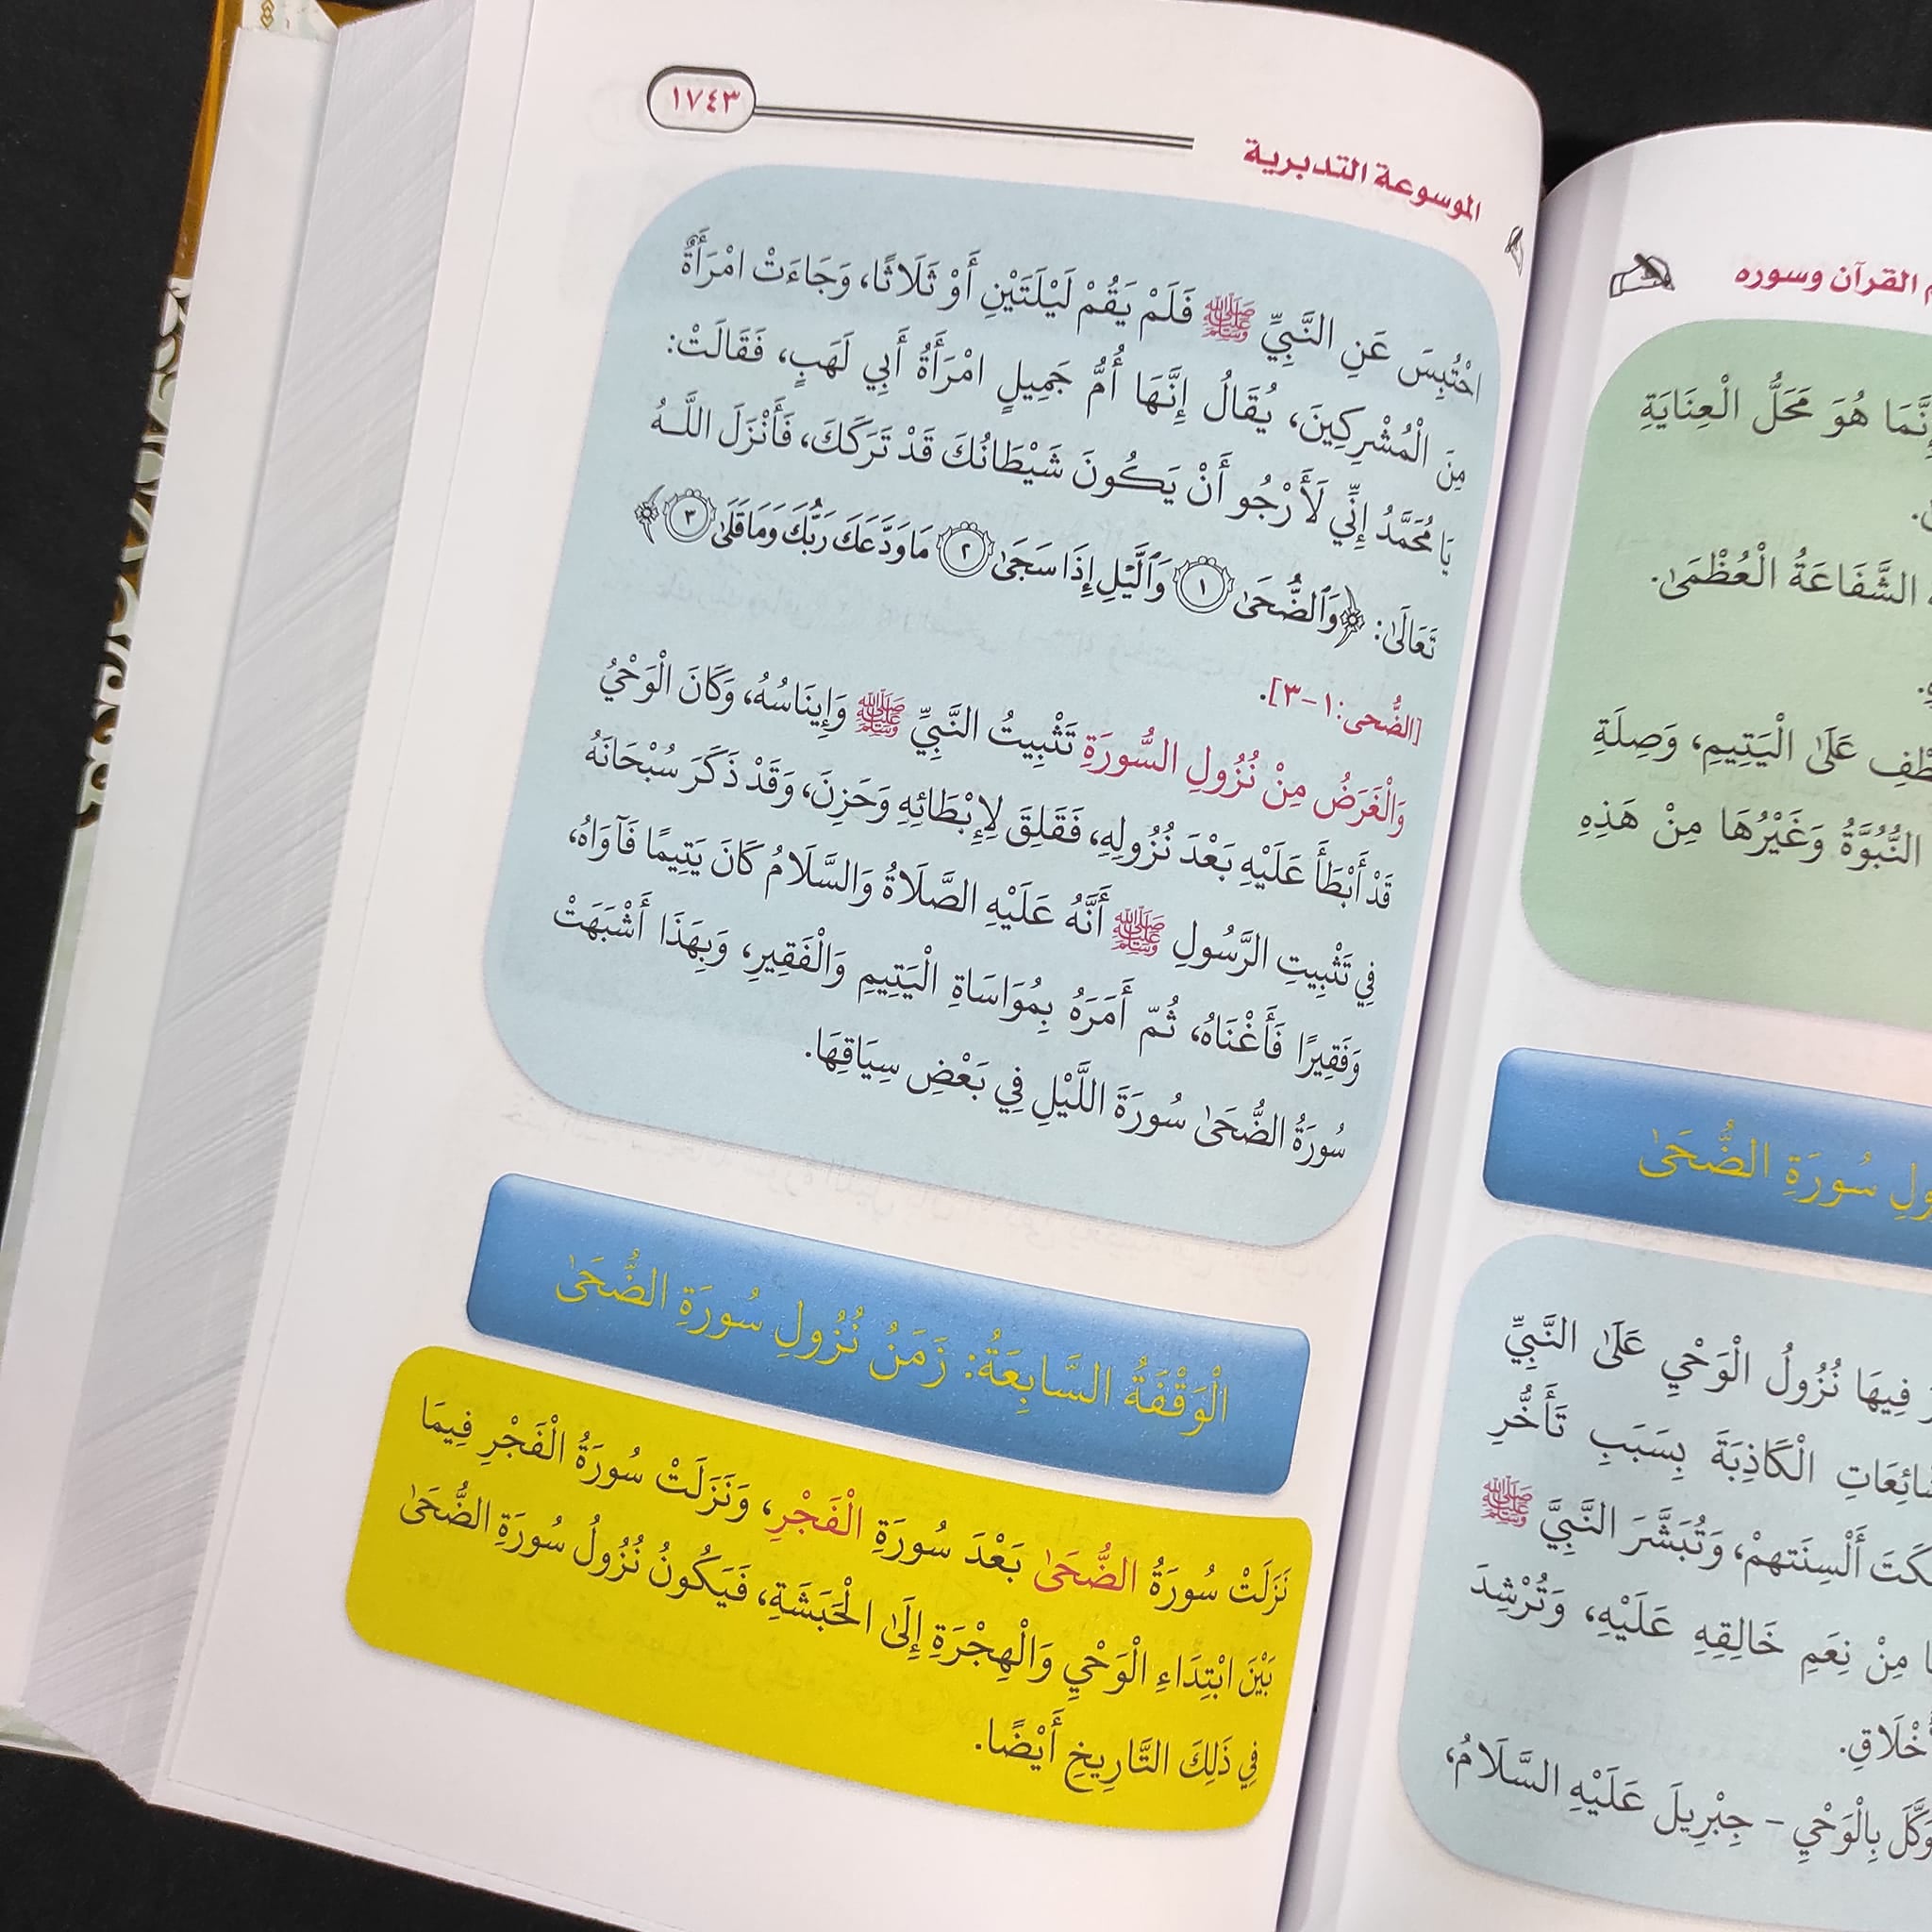 م القرآن وسوره
إنَّمَا هُوَ مَحَلُّ الْعِنَايَةِ
الشَّفَاعَةُ الْعُظْمَىٰ.
عَلَىٰ الْيَتِيمِ، وَصِلَةِ
النُّبُوَّةُ وَغَيْرُهَا مِنْ هَذِهِ
سُورَةِ الضُّحَىٰ
فِيهَا نُزُولُ الْوَحْيِ عَلَىٰ النَّبِيِّ
الْكَاذِبَةَ بِسَبَبِ تَأَخُّرِ
أَلْسِنَتهمْ، وَتُبَشَّرَ النَّبِيَّ ﷺ
مِنْ نِعَمِ خَالِقِهِ عَلَيْهِ، وَتُرْشِدَ
بِالْوَحْيِ - جِبْرِيلَ عَلَيْهِ السَّلَامُ،
الموسوعة التدبرية
١٧٤٣
احْتُبِسَ عَنِ النَّبِيِّ ﷺ فَلَمْ يَقُمْ لَيْلَتَيْنِ أَوْ ثَلَاثًا، وَجَاءَتْ امْرَأَةٌ
مِنَ الْمُشْرِكِينَ، يُقَالُ إِنَّهَا أُمُّ جَمِيلٍ امْرَأَةُ أَبِي لَهَبٍ، فَقَالَتْ:
يَا مُحَمَّدُ إِنِّي لَأَرْجُو أَنْ يَكُونَ شَيْطَانُكَ قَدْ تَرَكَكَ، فَأَنْزَلَ اللَّـهُ
تَعَالَىٰ: ﴿وَٱلضُّحَىٰ ١ وَٱلَّيْلِ إِذَا سَجَىٰ ٢ مَا وَدَّعَكَ رَبُّكَ وَمَا قَلَىٰ ٣﴾
[الضُّحى:١-٣].
وَالْغَرَضُ مِنْ نُزُولِ السُّورَةِ تَثْبِيتُ النَّبِيِّ ﷺ وَإِينَاسُهُ، وَكَانَ الْوَحْيُ
قَدْ أَبْطَأَ عَلَيْهِ بَعْدَ نُزُولِهِ، فَقَلِقَ لِإِبْطَائِهِ وَحَزِنَ، وَقَدْ ذَكَرَ سُبْحَانَهُ
فِي تَثْبِيتِ الرَّسُولِ ﷺ أَنَّهُ عَلَيْهِ الصَّلَاةُ وَالسَّلَامُ كَانَ يَتِيمًا فَآوَاهُ،
وَفَقِيرًا فَأَغْنَاهُ، ثُمّ أَمَرَهُ بِمُوَاسَاةِ الْيَتِيمِ وَالْفَقِيرِ، وَبِهَذَا أَشْبَهَتْ
سُورَةُ الضُّحَىٰ سُورَةَ اللَّيْلِ فِي بَعْضِ سِيَاقِهَا.
الْوَقْفَةُ السَّابِعَةُ: زَمَنُ نُزُولِ سُورَةِ الضُّحَىٰ
نَزَلَتْ سُورَةُ الضُّحَىٰ بَعْدَ سُورَةِ الْفَجْرِ، وَنَزَلَتْ سُورَةُ الْفَجْرِ فِيمَا
بَيْنَ ابْتِدَاءِ الْوَحْيِ وَالْهِجْرَةِ إِلَىٰ الْحَبَشَةِ، فَيَكُونُ نُزُولُ سُورَةِ الضُّحَىٰ
فِي ذَلِكَ التَّارِيخِ أَيْضًا.